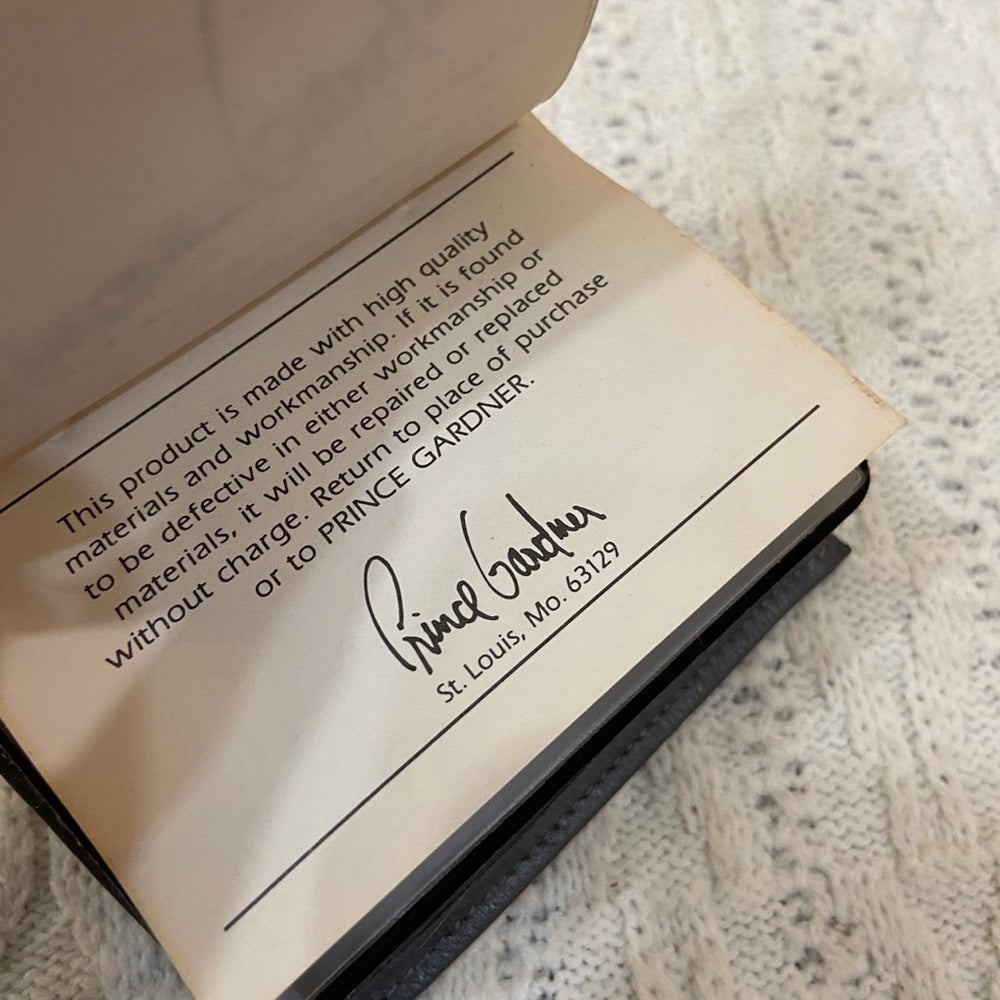 This product is made with high quality
materials and workmanship. If it is found
to be defective in either workmanship or
materials, it will be repaired or replaced
without charge. Return to place of purchase
or to PRINCE GARDNER.
Prince Gardner
St. Louis, Mo. 63129